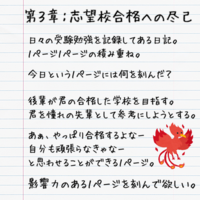 第3章;志望校合格への尽己
日々の受験勉強を記録してある日記。
1ページ1ページの積み重ね。
今日という1ページには何を刻んだ?
後輩が君の合格した学校を目指す。
君を憧れの先輩として参考にしようとする。
あぁ、やっぱり合格するよなー
自分も頑張らなきゃなー
と思わせることができる1ページ。
影響力のある1ページを刻んで欲しい。